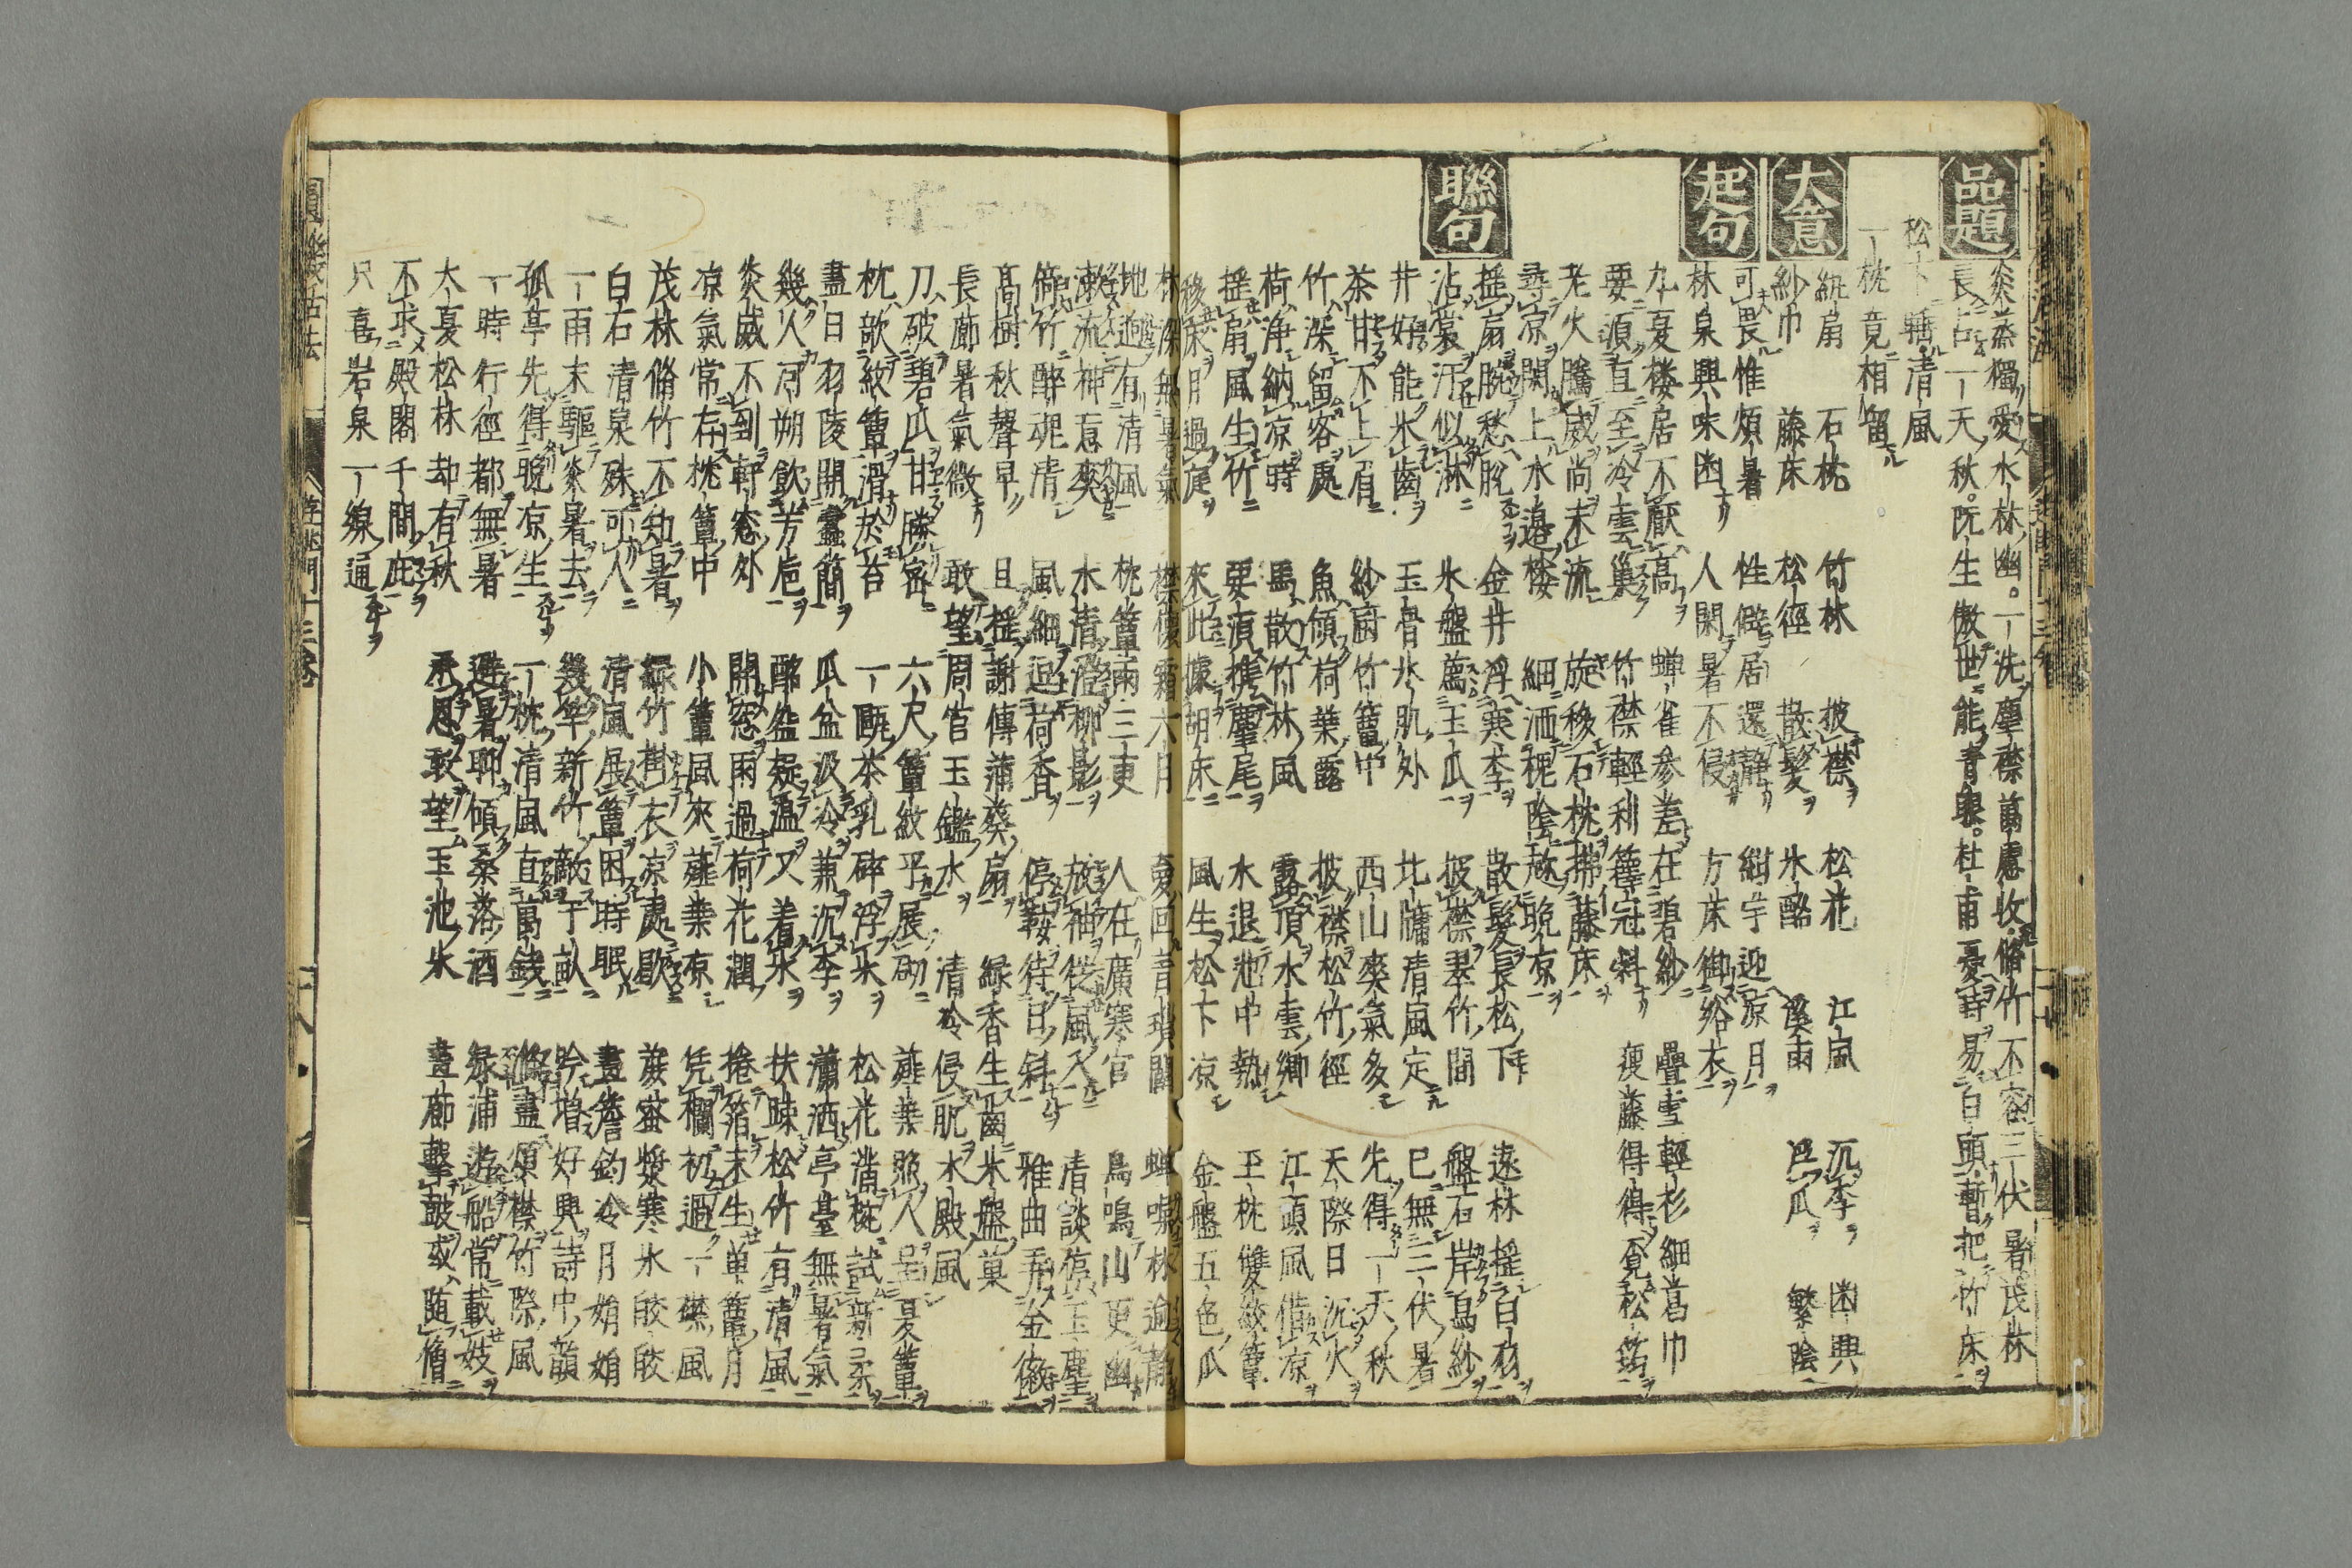 品題
炎蒸獨愛水林幽。一洗塵襟萬慮收。脩竹不容三伏暑。茂林
長占一天秋。阮生傲世能青眼。杜甫憂時易白頭。暫把竹床
松下輻清風
一枕竟相留
大意
紈扇 石枕 竹林 披襟 松花 江風 沉李 幽興
紗巾 藤床 松徑 散髮 氷酪 溪雨 繁陰
起句
可畏惟煩暑 性僻居還靜 紺宇迎涼月
林泉興味幽 人閑暑不侵 方床御絺衣
九夏樓居不厭高 蟬雀參差在碧紗 疊雪輕衫細葛巾
要須直至冷雲巢 竹襟輕利籜冠斜 瘦藤得得覓松筠
老火騰威尚未流 旋移石枕拂藤床
尋涼閑上水邉樓 細洒槐陰趂晩涼
聯句
揺扇腕愁脫 金井浮寒李 散髮長松下 遠林揺白羽
沾裳汗似淋 氷盤薦玉瓜 披襟翠竹間 盤石岸烏紗
井好能氷齒 玉骨氷肌外 北牖清風定 已無三伏暑
茶甘不上眉 紗㕑竹簟中 西山爽氣多 先得一天秋
竹深留客處 魚傾荷葉露 披襟松竹徑 天際日沉火
荷淨納涼時 馬散竹林風 露頂水雲鄉 江頭風借涼
揺扇風生竹 要須携麈尾 水退池中熱 玉枕雙紋簟
移床月過庭 來此據胡床 風生松下涼 金盤五色瓜
林深無暑氣 襟懷霜六月 夏回昔瑣闥 蟬噪林逾靜
地迥有清風 枕簟雨三更 人在廣寒官 鳥鳴山更幽
漱流神意爽 水清澄柳影 放袖從風入 清談停玉麈
倚竹醉魂清 風細迎荷香 停鞍待日斜 雅曲弄金徽
高樹秋聲早 且揺謝傅蒲葵扇 綠香生齒氷盤菓
長廊暑氣微 敢望周官玉鑑水 清冷侵肌水殿風
刀破碧瓜甘勝蜜 六尺簟紋平展砌 蕉葉照人呈夏簟
枕欹紋簟滑於苔 一甌茶乳碎浮氷 松花滿椀試新茶
盡日羽陵開蠹簡 瓜盆汲冷兼沉李 瀟洒亭臺無暑氣
幾人河朔飲芳巵 酪盌凝温又着氷 扶踈松竹有清風
炎威不到軒窓外 開窓雨過荷花潤 捲箔未生單簟月
涼氣常存枕簟中 小簟風來蓮葉涼 凭欄初過一襟風
茂林脩竹不知暑 綠竹掛衣涼處歇 蔗蜜漿寒氷皎皎
白石清泉殊可人 清風展簟困時眠 畫簷鈎冷月娟娟
一雨末驅炎暑去 幾竿新竹敵千畝 吟增好興詩中韻
孤亭先得晩凉生 一枕清風直萬錢 滌盡煩襟竹際風
一時行徑都無暑 避暑聊傾桑落酒 綠浦遊船常載妓
大夏松林却有秋 承恩敢望玉池氷 晝廊擊鼓或随僧
不求殿閣千間庇
只喜岩泉一線通